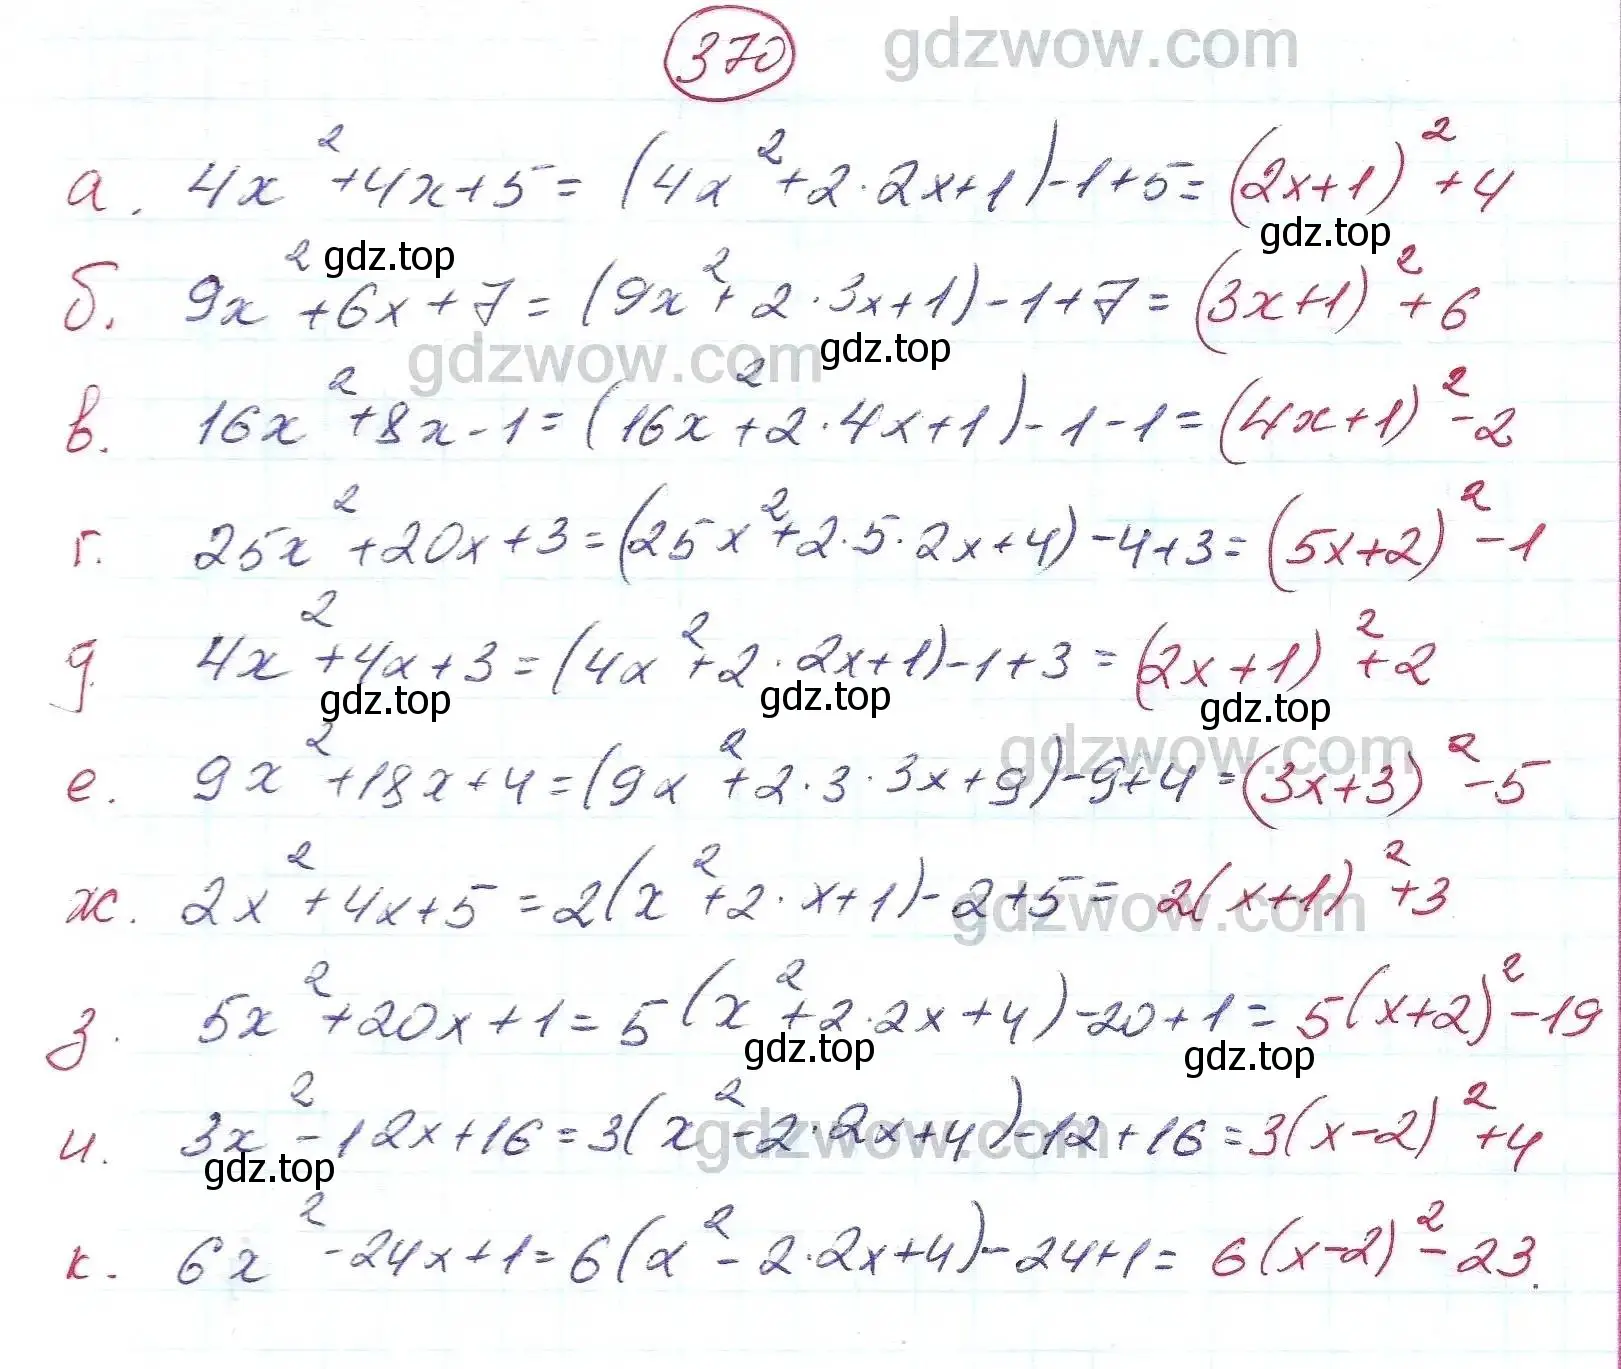 370 gdzwow.com
а. 4x² + 4x + 5 = (4x² + 2·2x + 1) - 1 + 5 = (2x + 1)² + 4
gdz.top gdz.top
б. 9x² + 6x + 7 = (9x² + 2·3x + 1) - 1 + 7 = (3x + 1)² + 6
gdzwow.com gdz.top
в. 16x² + 8x - 1 = (16x² + 2·4x + 1) - 1 - 1 = (4x + 1)² - 2
г. 25x² + 20x + 3 = (25x² + 2·5·2x + 4) - 4 + 3 = (5x + 2)² - 1
д. 4x² + 4x + 3 = (4x² + 2·2x + 1) - 1 + 3 = (2x + 1)² + 2
gdz.top gdz.top gdz.top
gdzwow.com
е. 9x² + 18x + 4 = (9x² + 2·3·3x + 9) - 9 + 4 = (3x + 3)² - 5
ж. 2x² + 4x + 5 = 2(x² + 2·x + 1) - 2 + 5 = 2(x + 1)² + 3
gdzwow.com
з. 5x² + 20x + 1 = 5(x² + 2·2x + 4) - 20 + 1 = 5(x + 2)² - 19
gdz.top gdz.top
и. 3x² - 12x + 16 = 3(x² - 2·2x + 4) - 12 + 16 = 3(x - 2)² + 4
gdz.top gdzwow.com
к. 6x² - 24x + 1 = 6(x² - 2·2x + 4) - 24 + 1 = 6(x - 2)² - 23.